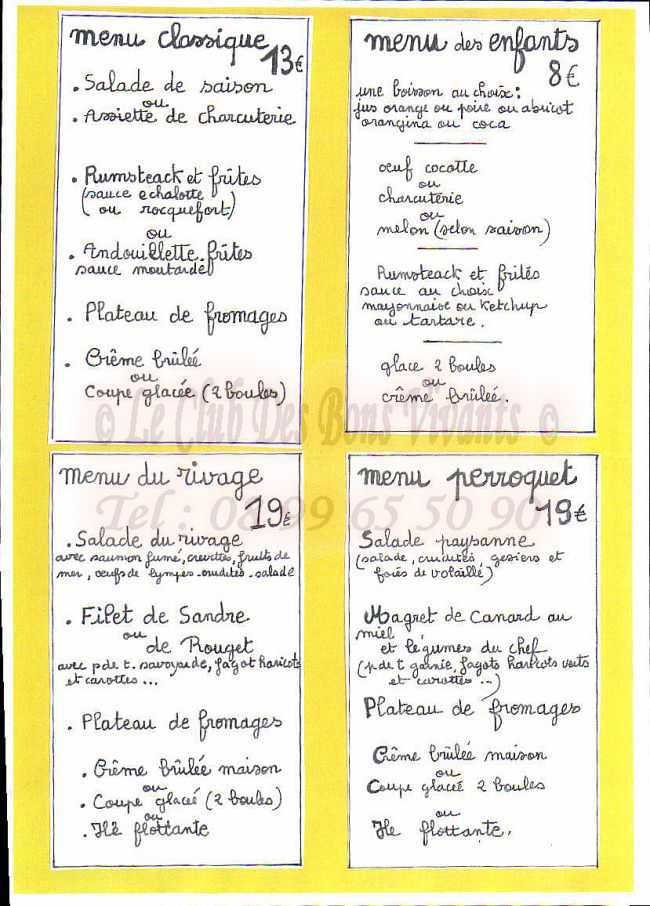 menu classique
13€
. Salade de saison
ou
. Assiette de charcuterie
. Rumsteack et frites
(sauce echalotte
ou rocquefort)
ou
. Andouillette frites
sauce moutarde
. Plateau de fromages
. Crême brûlée
ou
Coupe glacée (2 boules)
menu des enfants
8€
une boisson au choix:
jus orange ou poire ou abricot
orangina ou coca
oeuf cocotte
ou
charcuterie
ou
melon (selon saison)
Rumsteack et frites
sauce au choix
mayonnaise ou Ketchup
ou tartare.
glace 2 boules
ou
crême brûlée.
© Le Club Des Bons Vivants ©
Tel : 08 99 65 50 90
menu du rivage
19€
. Salade du rivage
avec saumon fumé, crevettes, fruits de
mer, oeufs de lympes. crudités. salade
. Filet de Sandre
ou
de Rouget
avec p de t. savoyarde, fagot haricots
et carottes...
. Plateau de fromages
. Crême brûlée maison
ou
. Coupe glacé (2 boules)
ou
. Ile flottante
menu perroquet
19€
Salade paysanne
(salade, crudités, gesiers et
foies de volaille)
Magret de Canard au
miel
et légumes du chef
(p de t garnie, fagots haricots verts
et carottes...)
Plateau de fromages
Crême brûlée maison
ou
Coupe glacée 2 boules
ou
Ile flottante.